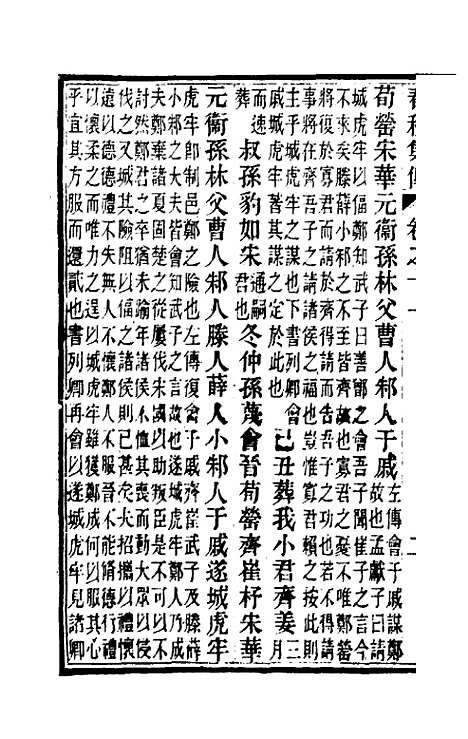 春秋集傳 卷之十一 二
荀罃宋華元衛孫林父曹人邾人于戚左傳會于戚謀鄭
故也孟獻子曰請
城虎牢以偪鄭知武子曰善鄫之會吾子聞崔子之言今
不來矣滕薛小邾之不至皆齊故也寡君之憂不唯鄭罃
將復於寡君而請於齊得請而告吾子之功也若不得請
事將在齊吾子之請諸侯之福也豈惟寡君賴之按此則
主乎城虎牢之謀也下書列卿會
戚城虎牢著其謀之定於此也
己丑葬我小君齊姜三月
而速
葬
叔孫豹如宋通嗣
君也
冬仲孫蔑會晉荀罃齊崔杼宋華
元衛孫林父曹人邾人滕人薛人小邾人于戚遂城虎牢
虎牢卽制邑鄭之險也左傳復會于戚齊崔武子及滕薛
小邾之大夫皆會知武子之言故也遂城虎牢鄭人乃成
夫鄭棄諸夏固楚之從屢伐宋國以助叛臣是不可以不
討然鄭君之卒猶未踰年諸侯不恤其喪而動大眾以侵
伐之又城其險阻以偪之諸侯則已甚矣夫招攜以禮懷
遠以德德禮不失無人不懷鄭人不服晉不能脩德行禮
以懷柔之而唯力之逞以城虎牢雖獲鄭成何以服其心
乎宜其方服而還貳也書列卿再會以遂城虎牢見諸卿